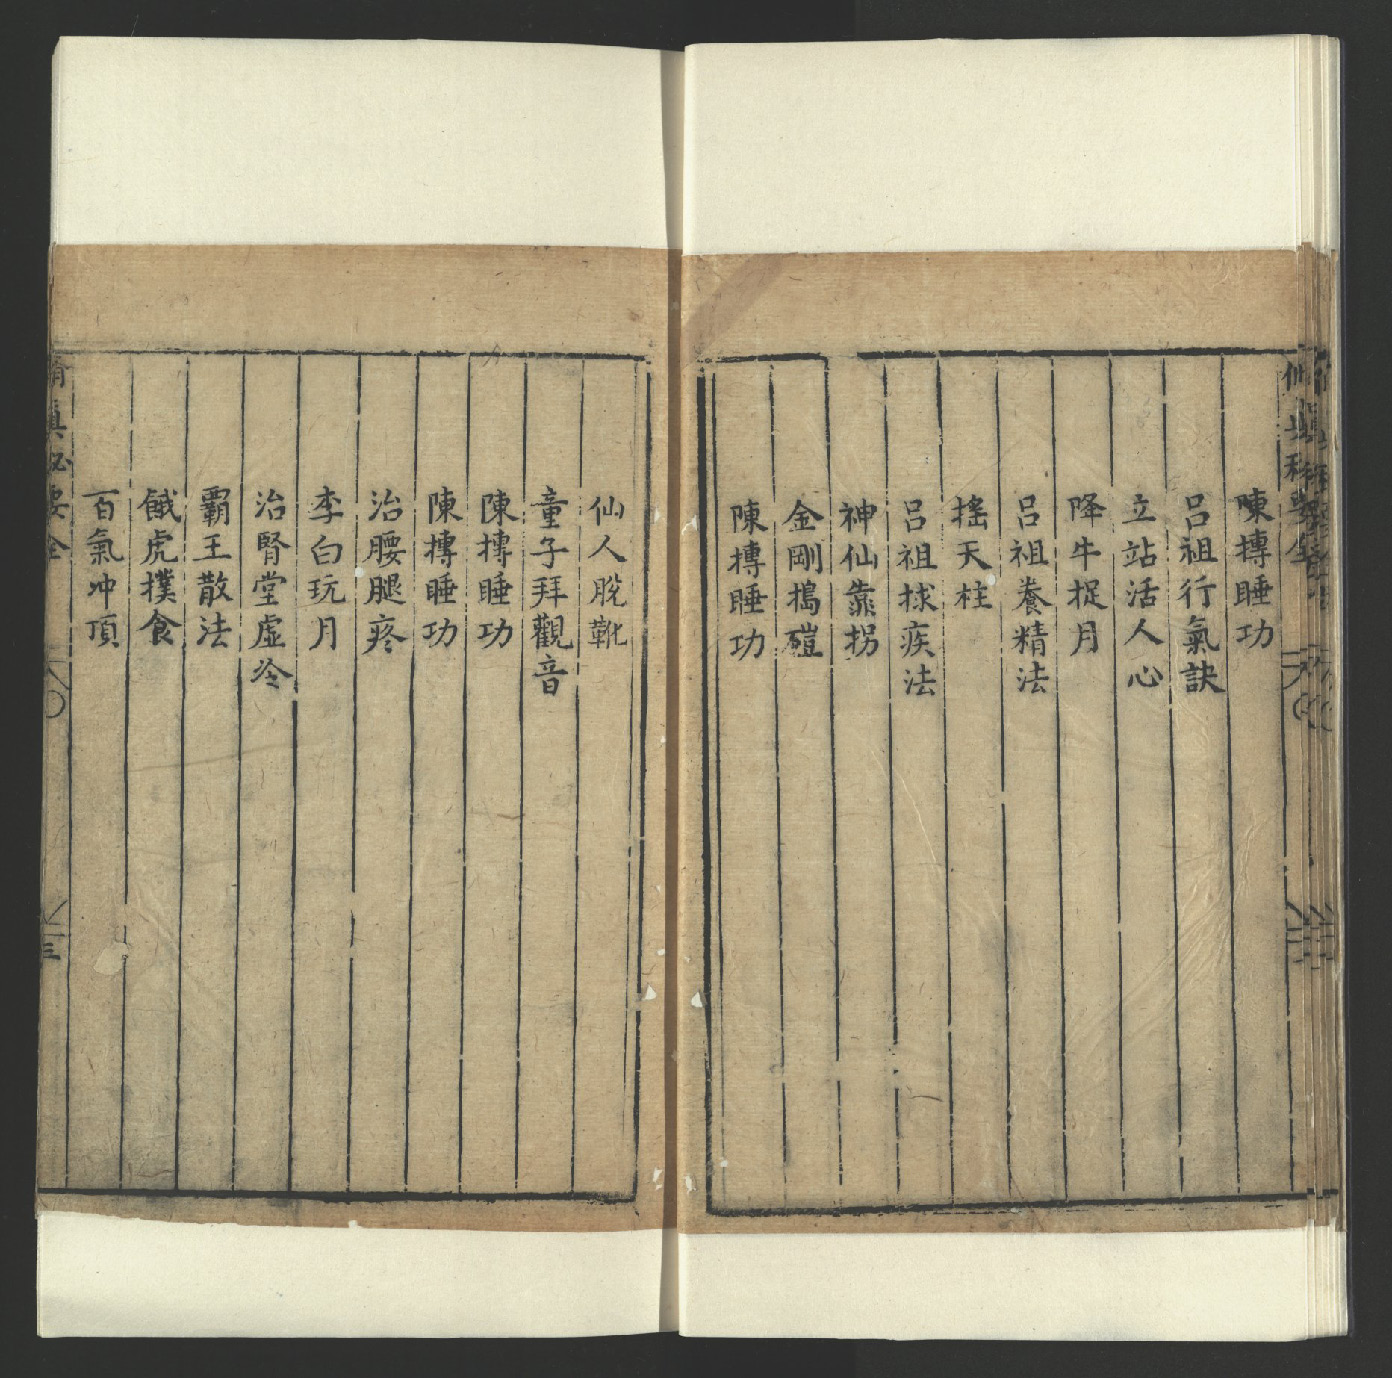 陳摶睡功
呂祖行氣訣
立站活人心
降牛捉月
呂祖養精法
搖天柱
呂祖捄疾法
神仙靠拐
金剛搗磑
陳摶睡功
仙人脫靴
童子拜觀音
陳摶睡功
陳摶睡功
治腰腿疼
李白玩月
治腎堂虛冷
霸王散法
餓虎撲食
百氣冲頂
真秘要全
三